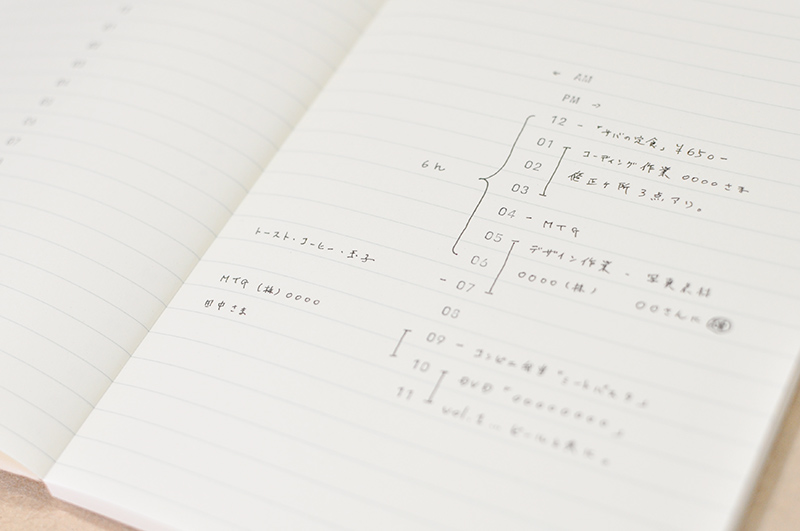 ← AM
PM →
12 - 「サバの定食」 ¥650-
01 コーディング作業 0000さま
02 修正ヶ所 3点アリ。
03
6h
04 - MTG
05 デザイン作業 - 写真素材
06 0000(株) 00さんに
- 07
08
09 - コンビニの
10 DVD "00000000"
11 vol.
トースト・コーヒー・玉子
MTG (株)0000
田中さま